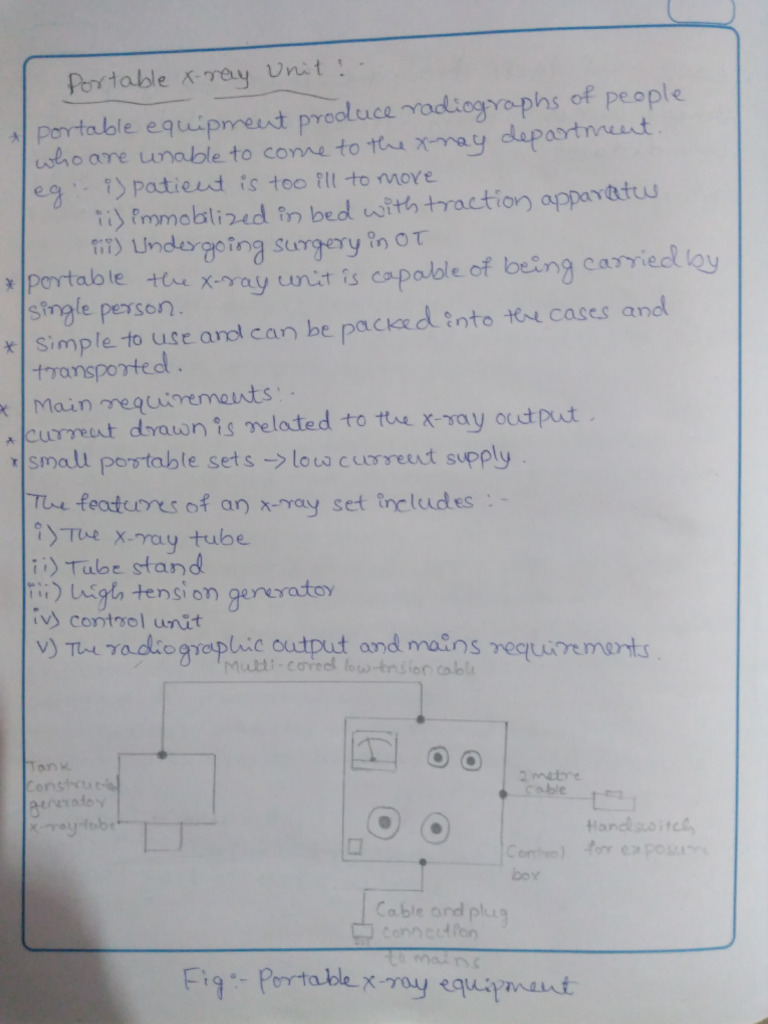 Portable x-ray Unit :-
* portable equipment produce radiographs of people
who are unable to come to the x-ray department.
eg :- i) patient is too ill to move
ii) immobilized in bed with traction apparatus
iii) Undergoing surgery in OT
* portable the x-ray unit is capable of being carried by
single person.
* simple to use and can be packed into the cases and
transported.
* Main requirements :-
* current drawn is related to the x-ray output.
* small portable sets → low current supply.
The features of an x-ray set includes :-
i) The x-ray tube
ii) Tube stand
iii) high tension generator
iv) control unit
v) The radiographic output and mains requirements.
Multi-cored low-tnsion cable
Tank
construcid
generator
x-ray tube
2 metre
cable
Handswitch
for exposure
Control
box
Cable and plug
connection
to mains
Fig :- Portable x-ray equipment